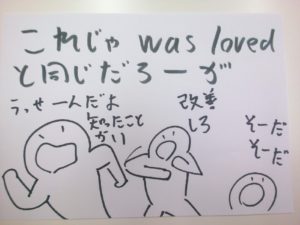 これじゃ was loved
と同じだろーが
うっせーんだよ
知ったこと
かい
改善
しろ
そーだ
そーだ